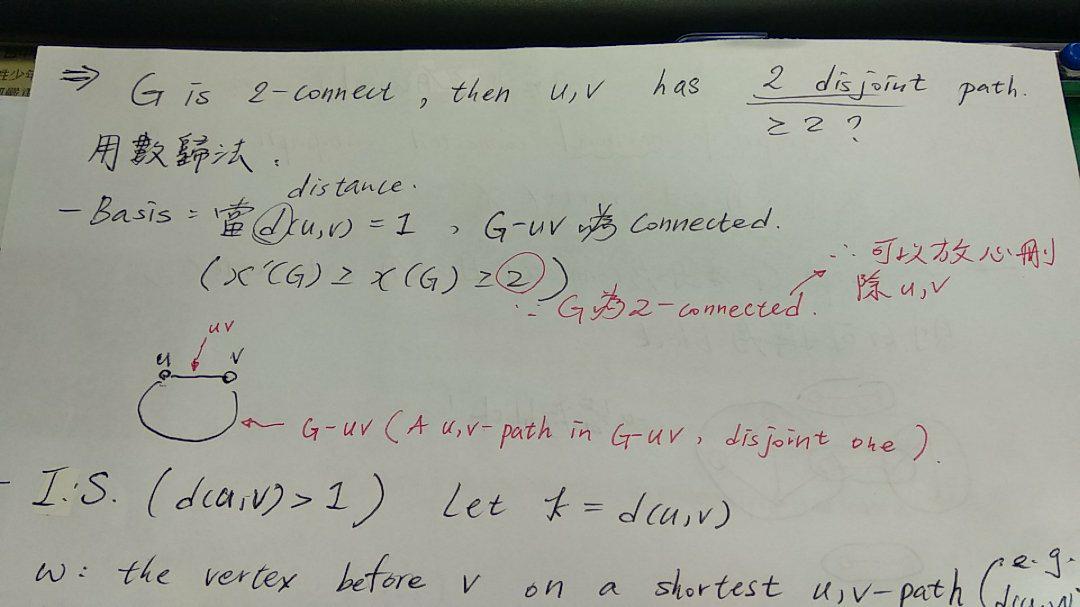 ⇒ G is 2-connect, then u,v has 2 disjoint path.
≥ 2 ?
用數歸法:
distance.
- Basis: 當 d(u,v) = 1, G-uv 為 connected.
(χ'(G) ≥ χ(G) ≥ 2)
∵ G為2-connected.
∴ 可以放心刪
除 u,v
uv
u v
G-uv (A u,v-path in G-uv, disjoint one).
- I.S. (d(u,v) > 1) Let k = d(u,v)
w: the vertex before v on a shortest u,v-path (e.g.